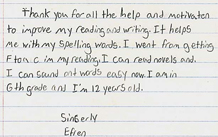 Thank you for all the help and motivation
to improve my reading and writing. It helps
me with my spelling words. I went from getting
F to a C in my reading. I can read novels and.
I can sound out words easy now. I am in
6th grade and I'm 12 years old.
Sinserly
Efren